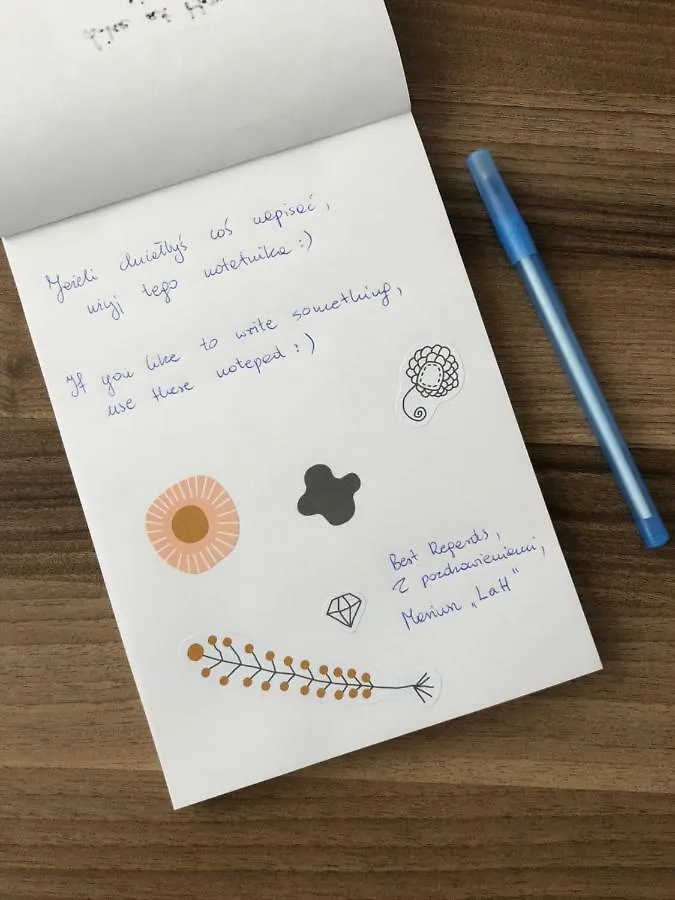 Jeżeli chciałbyś coś napisać,
użyj tego notatnika :)
If you like to write something,
use these notepad :)
Best Regards,
Z pozdrowieniami,
Mariusz „LaH”